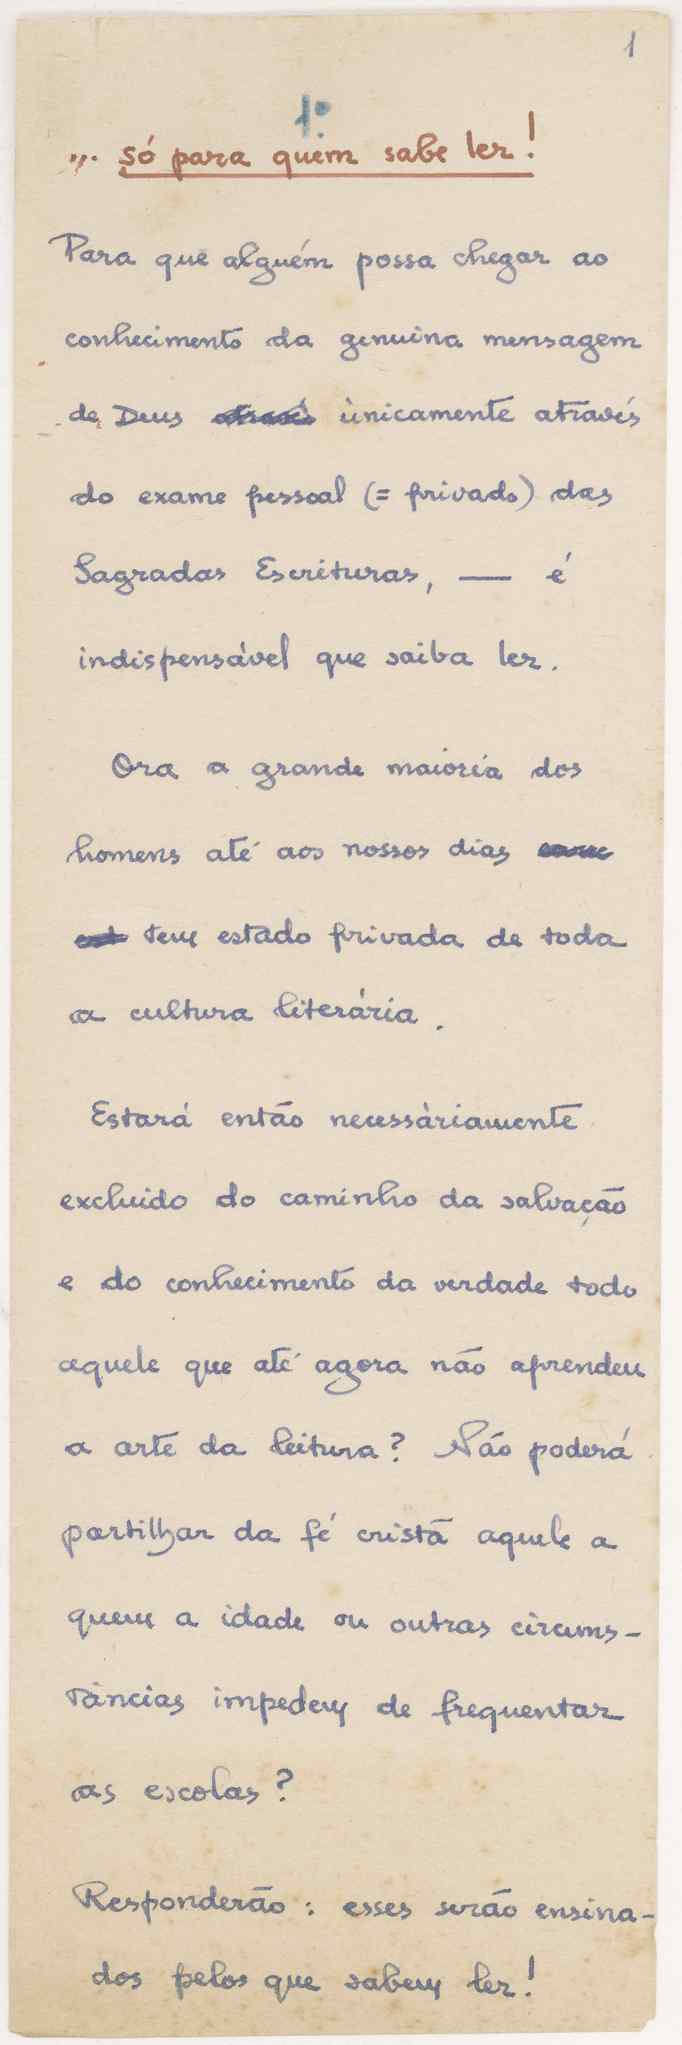 1
1º
... só para quem sabe ler!
Para que alguém possa chegar ao
conhecimento da genuina mensagem
de Deus através ùnicamente através
do exame pessoal (= privado) das
Sagradas Escrituras, — é
indispensável que saiba ler.
Ora a grande maioria dos
homens até aos nossos dias
tem estado privada de toda
a cultura literária.
Estará então necessàriamente
excluido do caminho da salvação
e do conhecimento da verdade todo
aquele que até agora não aprendeu
a arte da leitura? Não poderá
partilhar da fé cristã aquele a
quem a idade ou outras circuns-
tâncias impedem de frequentar
as escolas?
Responderão: esses serão ensina-
dos pelos que sabem ler!